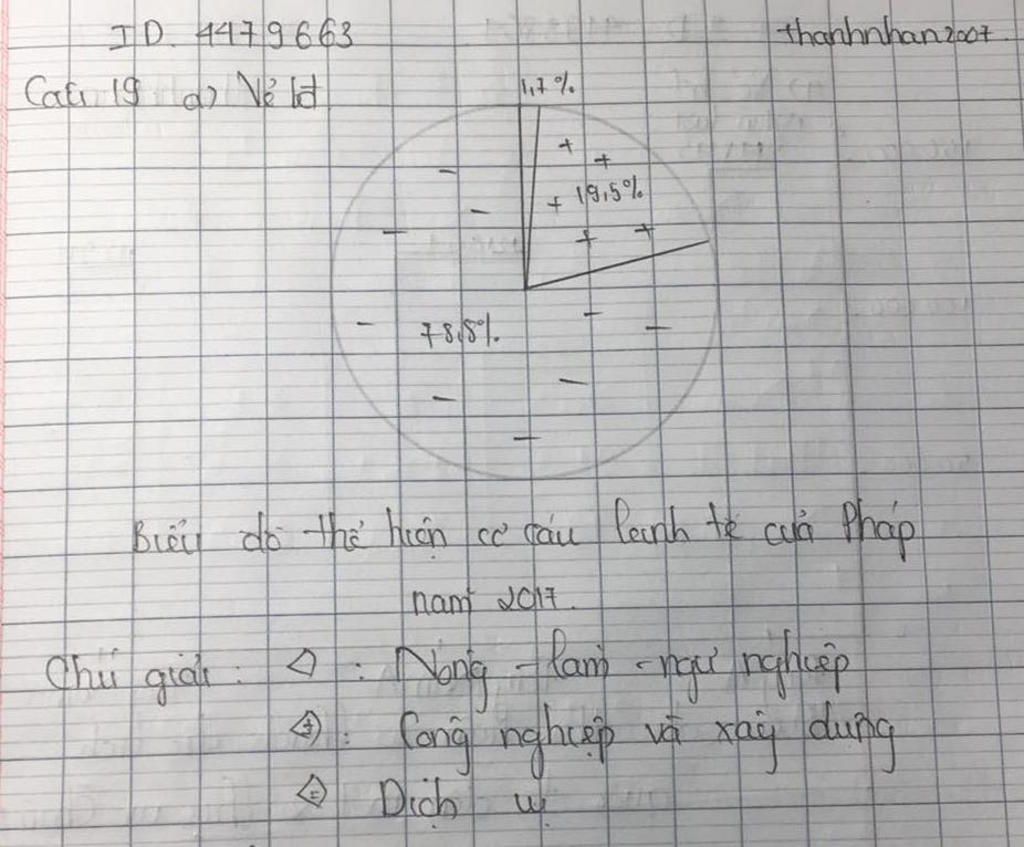 ID. 4479663 thanhnhan2007
Câu 19 a) Vẽ bđ
1,7%
19,5%
78,8%
Biểu đồ thể hiện cơ cấu kinh tế của Pháp
năm 2017.
Chú giải: : Nông - lâm - ngư nghiệp
: Công nghiệp và xây dựng
Dịch vụ